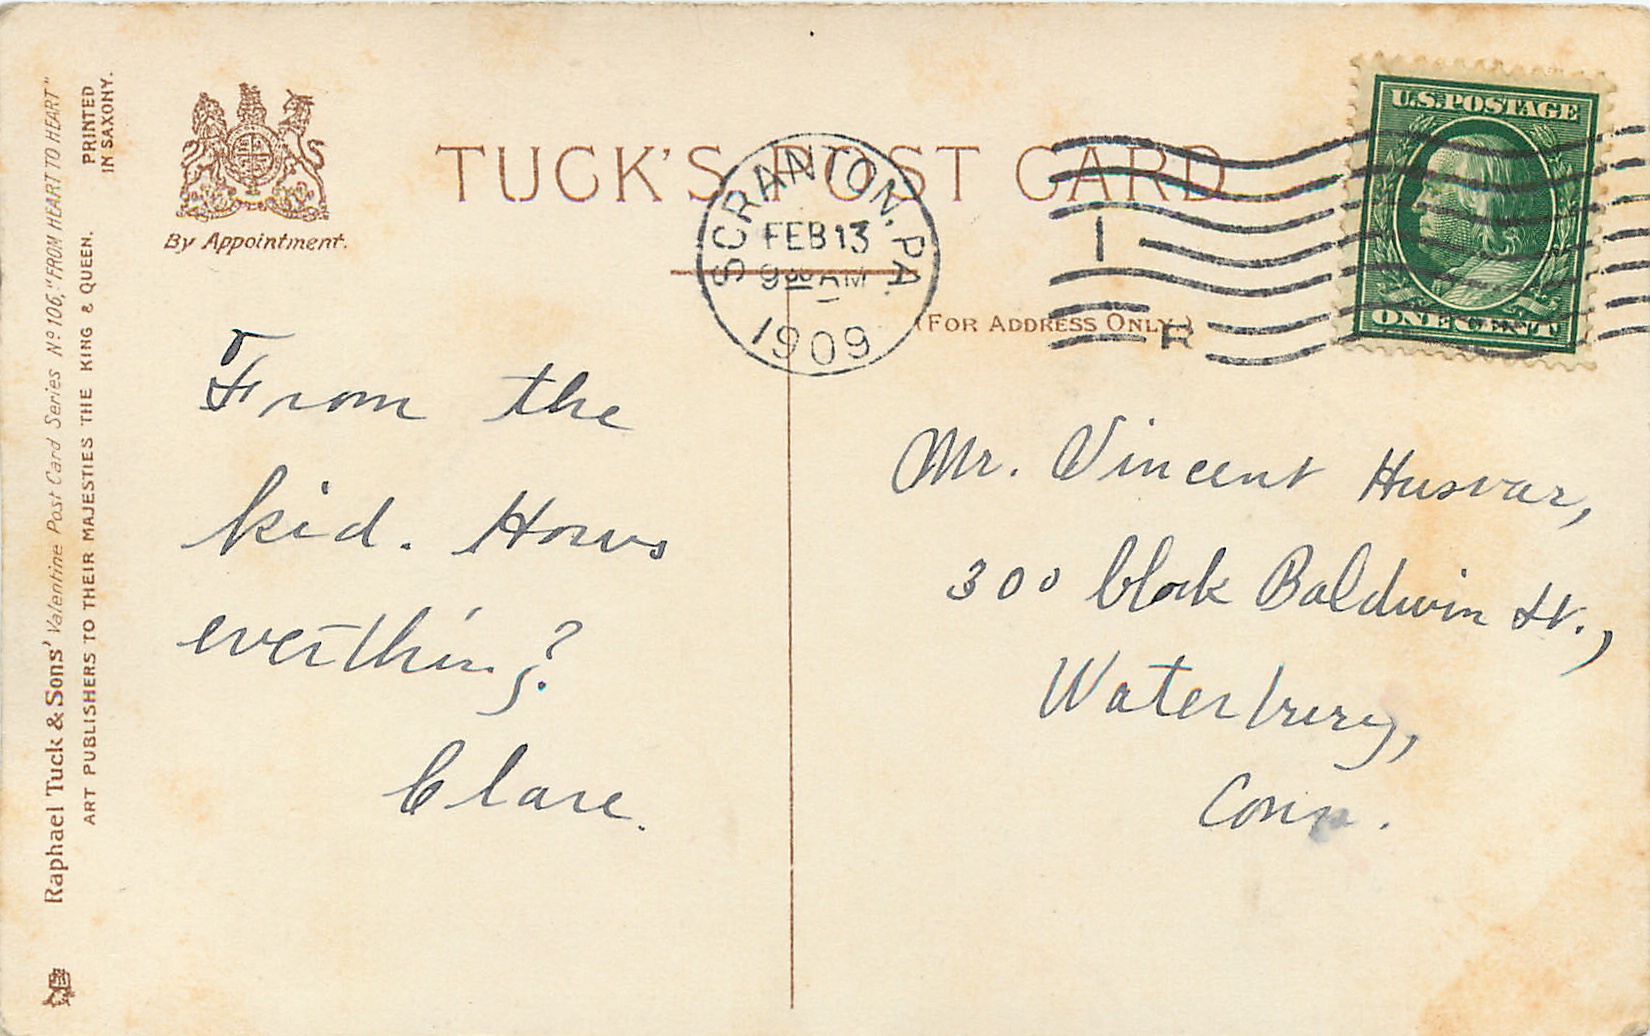 Raphael Tuck & Sons' Valentine Post Card Series Nº 106, "FROM HEART TO HEART"
ART PUBLISHERS TO THEIR MAJESTIES THE KING & QUEEN.
PRINTED
IN SAXONY.
By Appointment.
TUCK'S POST CARD
SCRANTON, PA
FEB 13
9 30 AM
1909
1
R
U.S. POSTAGE
ONE CENT
(FOR ADDRESS ONLY.)
From the
kid. Hows
everthing?
Clare.
Mr. Vincent Husvar,
300 block Baldwin St.,
Waterbury,
Conn.